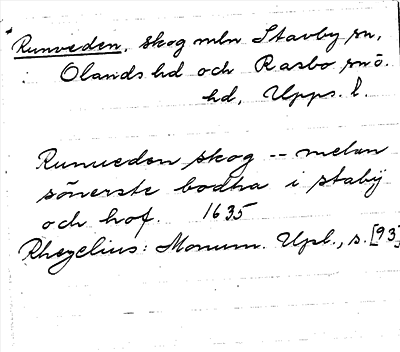 Runveden, skog mln Stavby sn,
Olands hd och Rasbo sn o.
hd, Upps. l.
Runueden skog -- melan
sönerste bodha i staby
och hof. 1635
Rhezelius: Monum. Upl., s. [93]